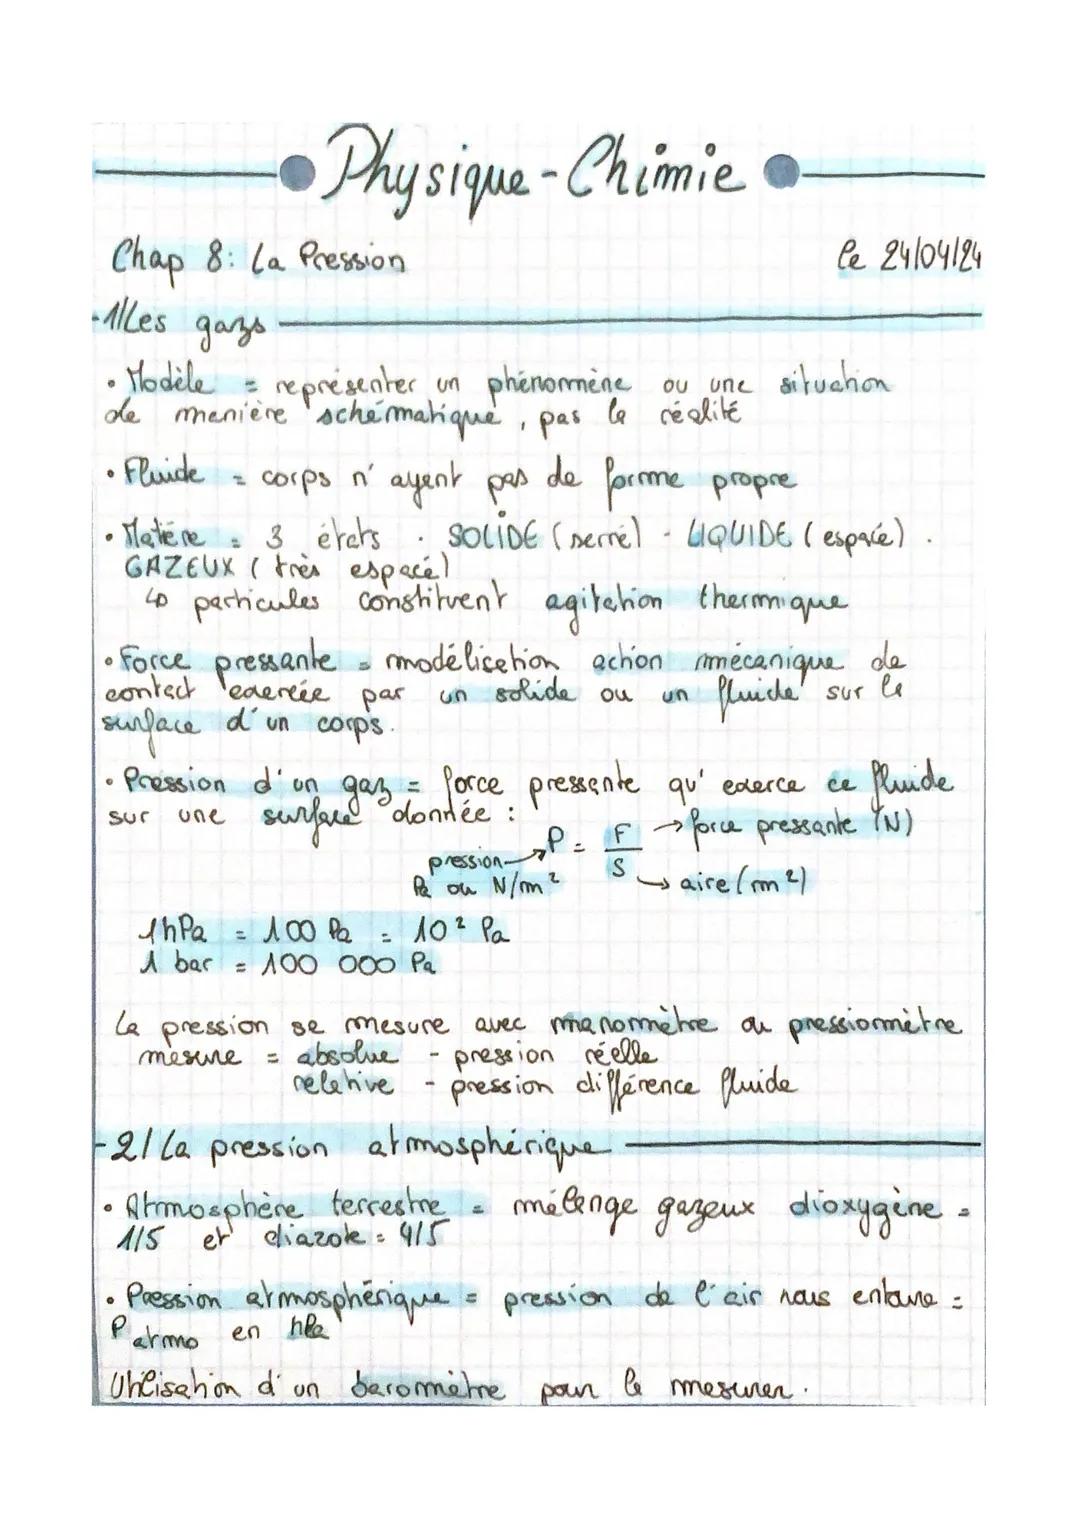 Physique-Chimie
Chap 8: La Pression le 24/04/24
-1/Les gazs
• Modèle = représenter un phénomène ou une situation
de manière schématique, pas la réalité
• Fluide = corps n'ayant pas de forme propre
• Matère = 3 états . SOLIDE (serré) - LIQUIDE (espacé) .
GAZEUX (très espacé)
↳ particules constituent agitation thermique
• Force pressante = modélisation action mécanique de
contact exercée par un solide ou un fluide sur la
surface d'un corps.
• Pression d'un gaz = force pressante qu'exerce ce fluide
sur une surface donnée :
P = F/S → force pressante (N)
pression → P
Pa ou N/m² → aire (m²)
1 hPa = 100 Pa = 10² Pa
1 bar = 100 000 Pa
La pression se mesure avec manomètre ou pressiomètre
mesure = absolue - pression réelle
relative - pression différence fluide
-2/ La pression atmosphérique
• Atmosphère terrestre = mélange gazeux dioxygène =
1/5 et diazote = 4/5
• Pression atmosphérique = pression de l'air nous entoure =
P atmo en hPa
Utilisation d'un baromètre pour la mesurer.